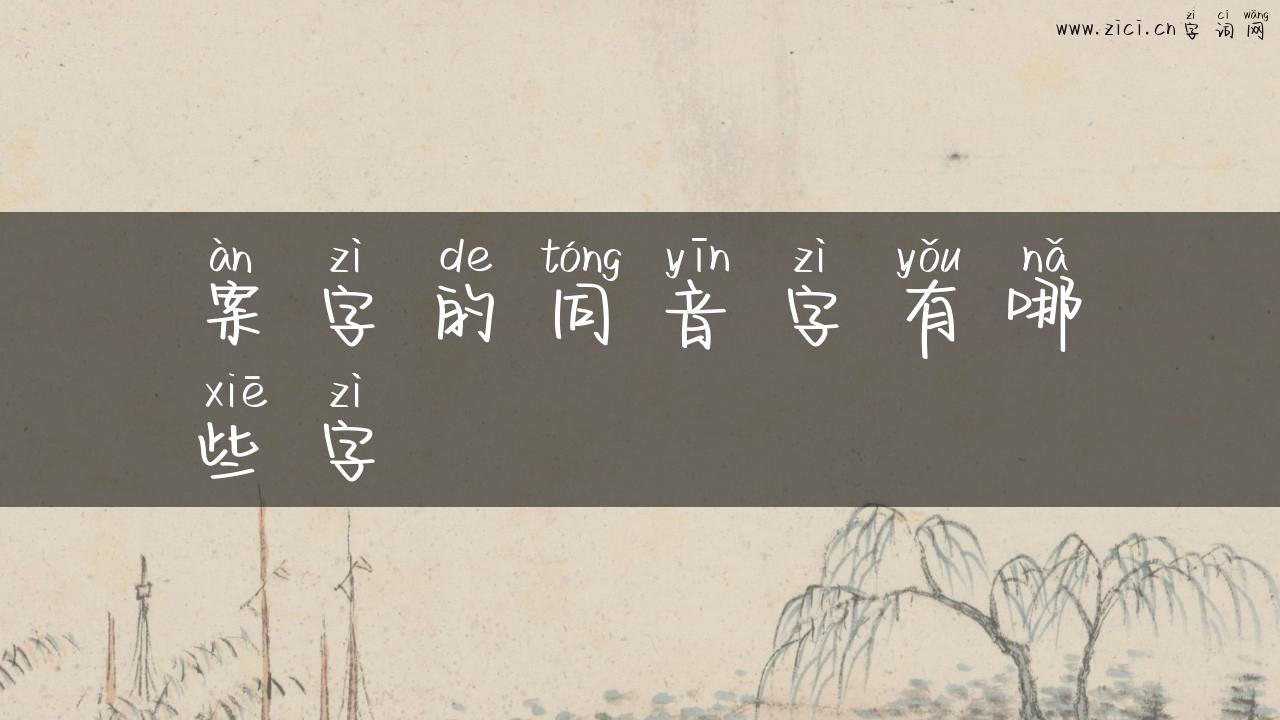 zì cí wǎng
www.zici.cn 字词网
àn zì de tóng yīn zì yǒu nǎ
案字的同音字有哪
xiē zì
些字